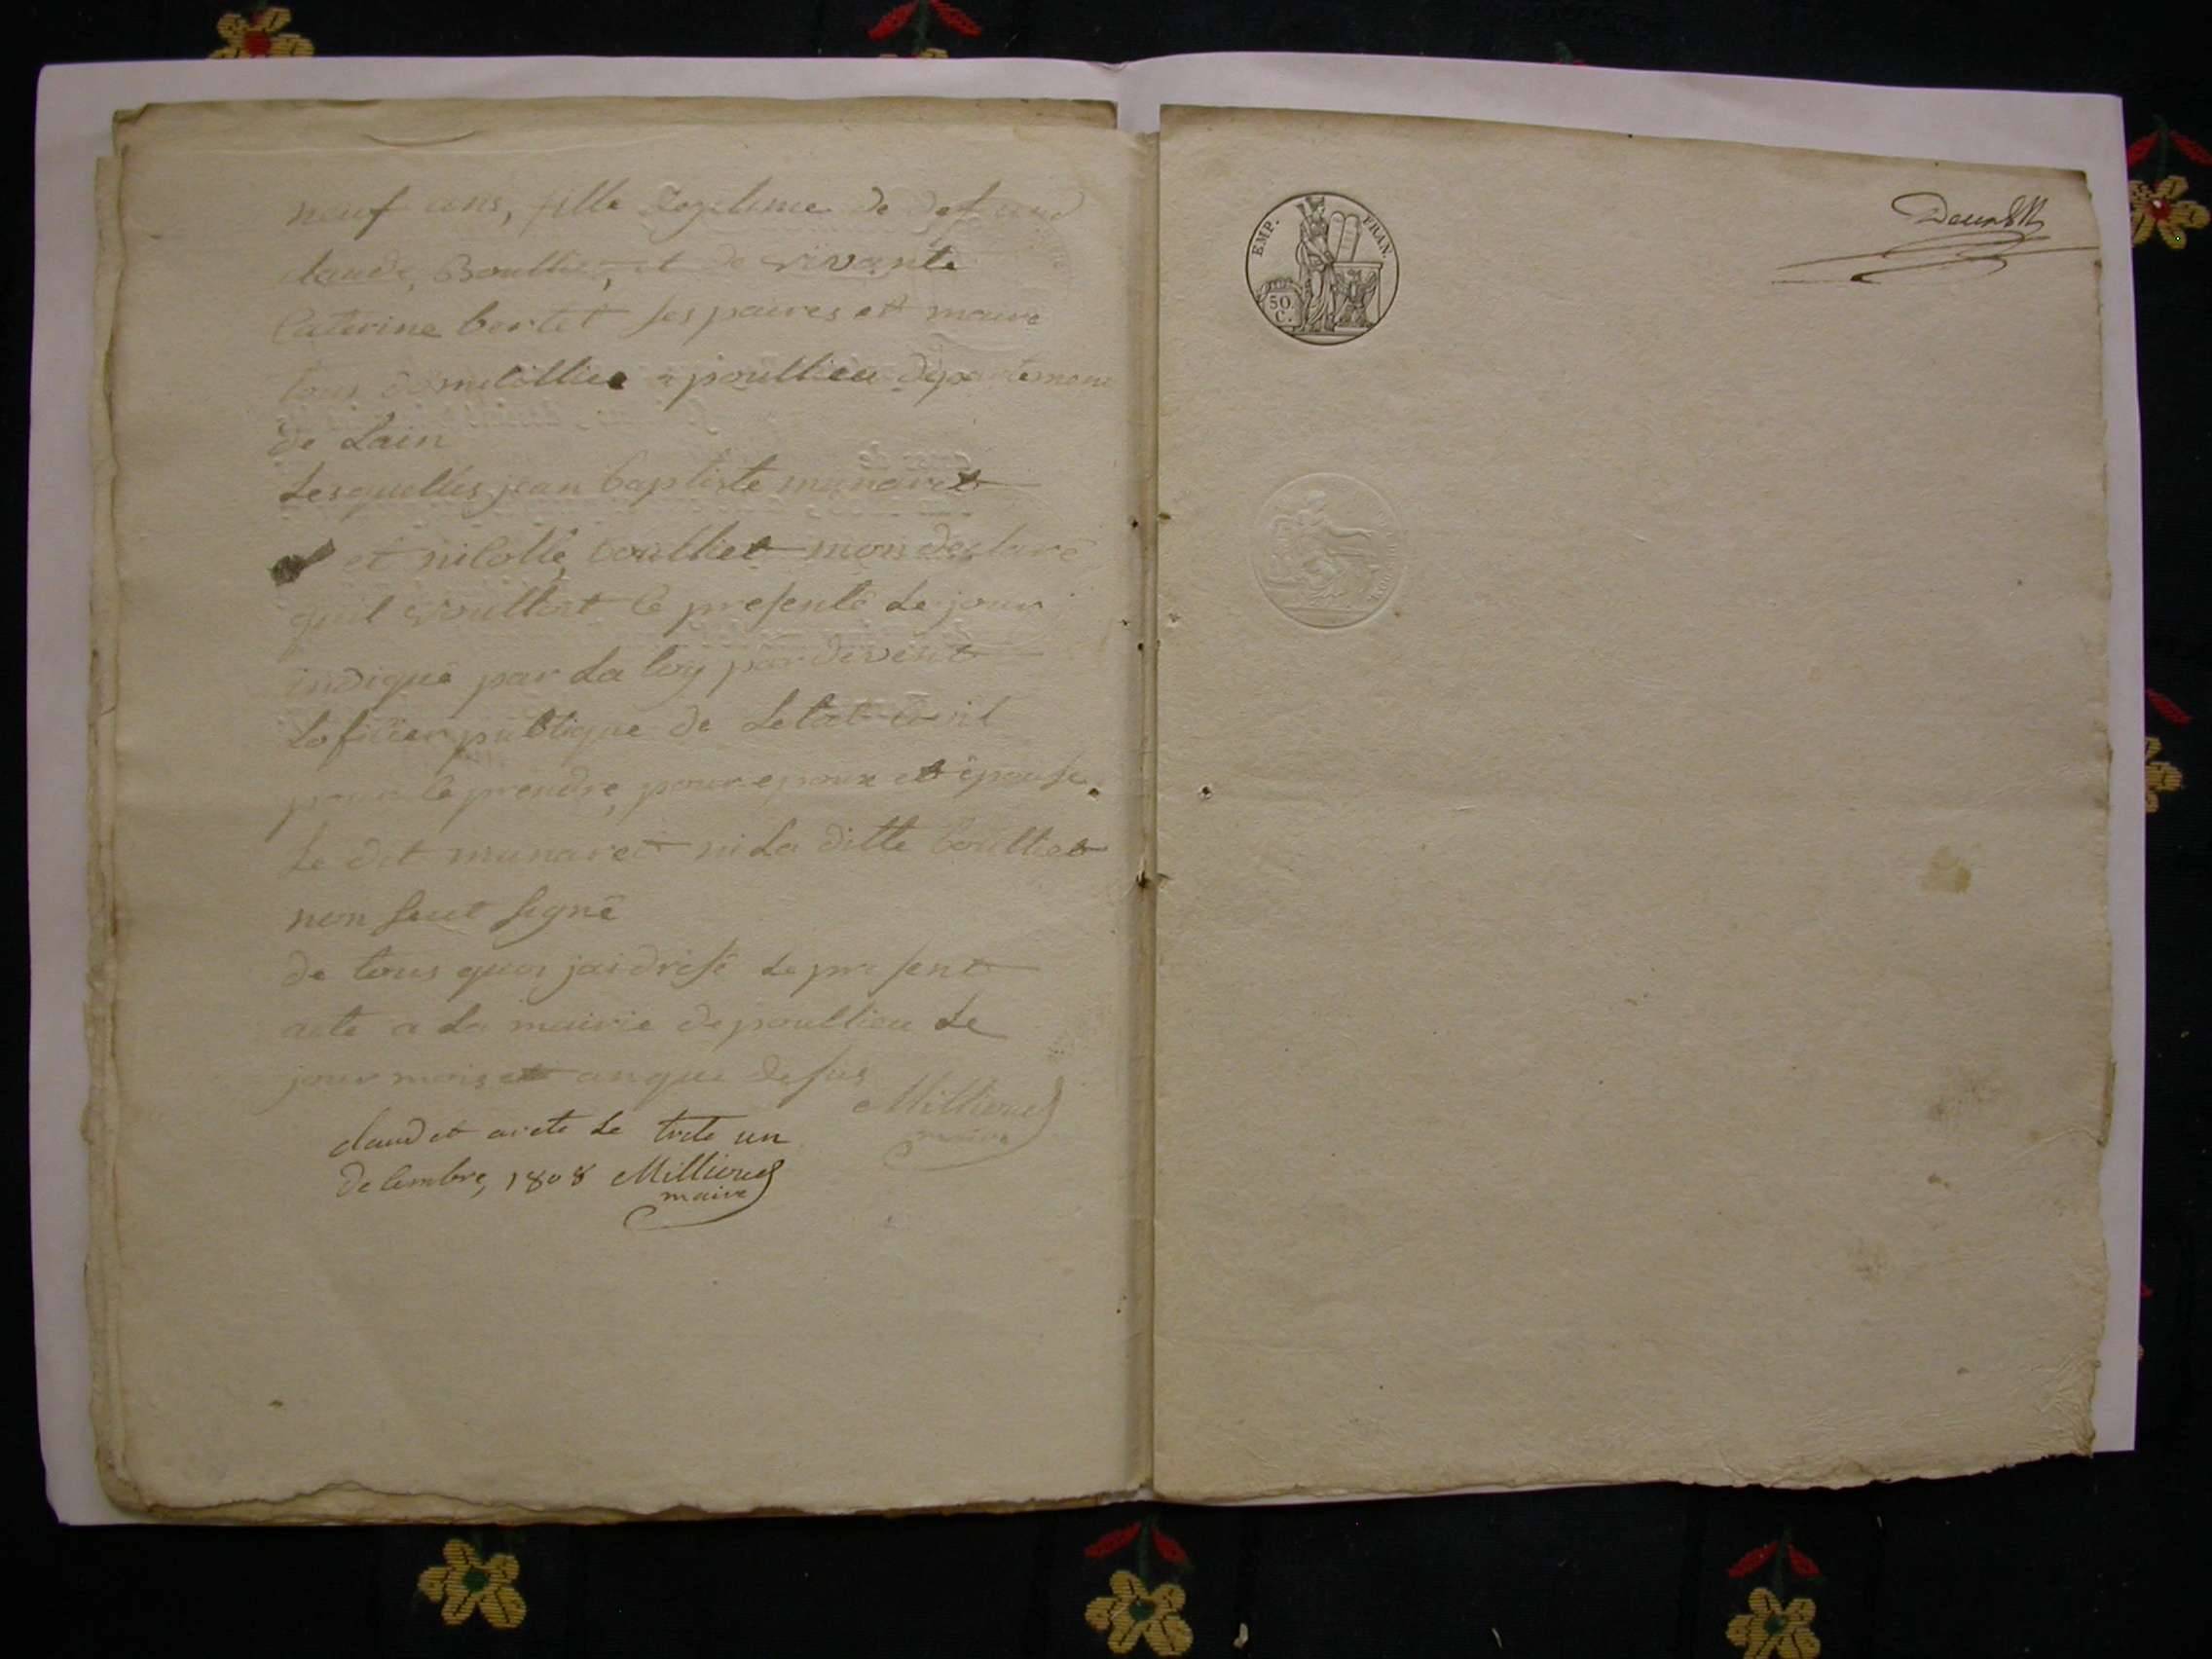 neuf ans, fille legitime de defund
claude, Boulliet, et de vivante
Caterine bertet ses paires et maire
tous domicillies a poullieu departement
de Lain
Lesquelles jean baptiste munaret
et nicolle boulliet mon declaré
quil voulloit ce presenté Le jour
indiqué par La loy pardevent
Loficier publique de Letat civil
pour ce prendre, pour epoux et épouse.
Le dit munaret ni La ditte boulliet
non seut signé
de tous quoi jai dresé Le present
acte a La mairie de poullieu Le
jour mois et an que desus
Millioud
maire
claud et areté Le trete un
decembre, 1808 Millioud
maire
EMP. FRAN.
50
C.